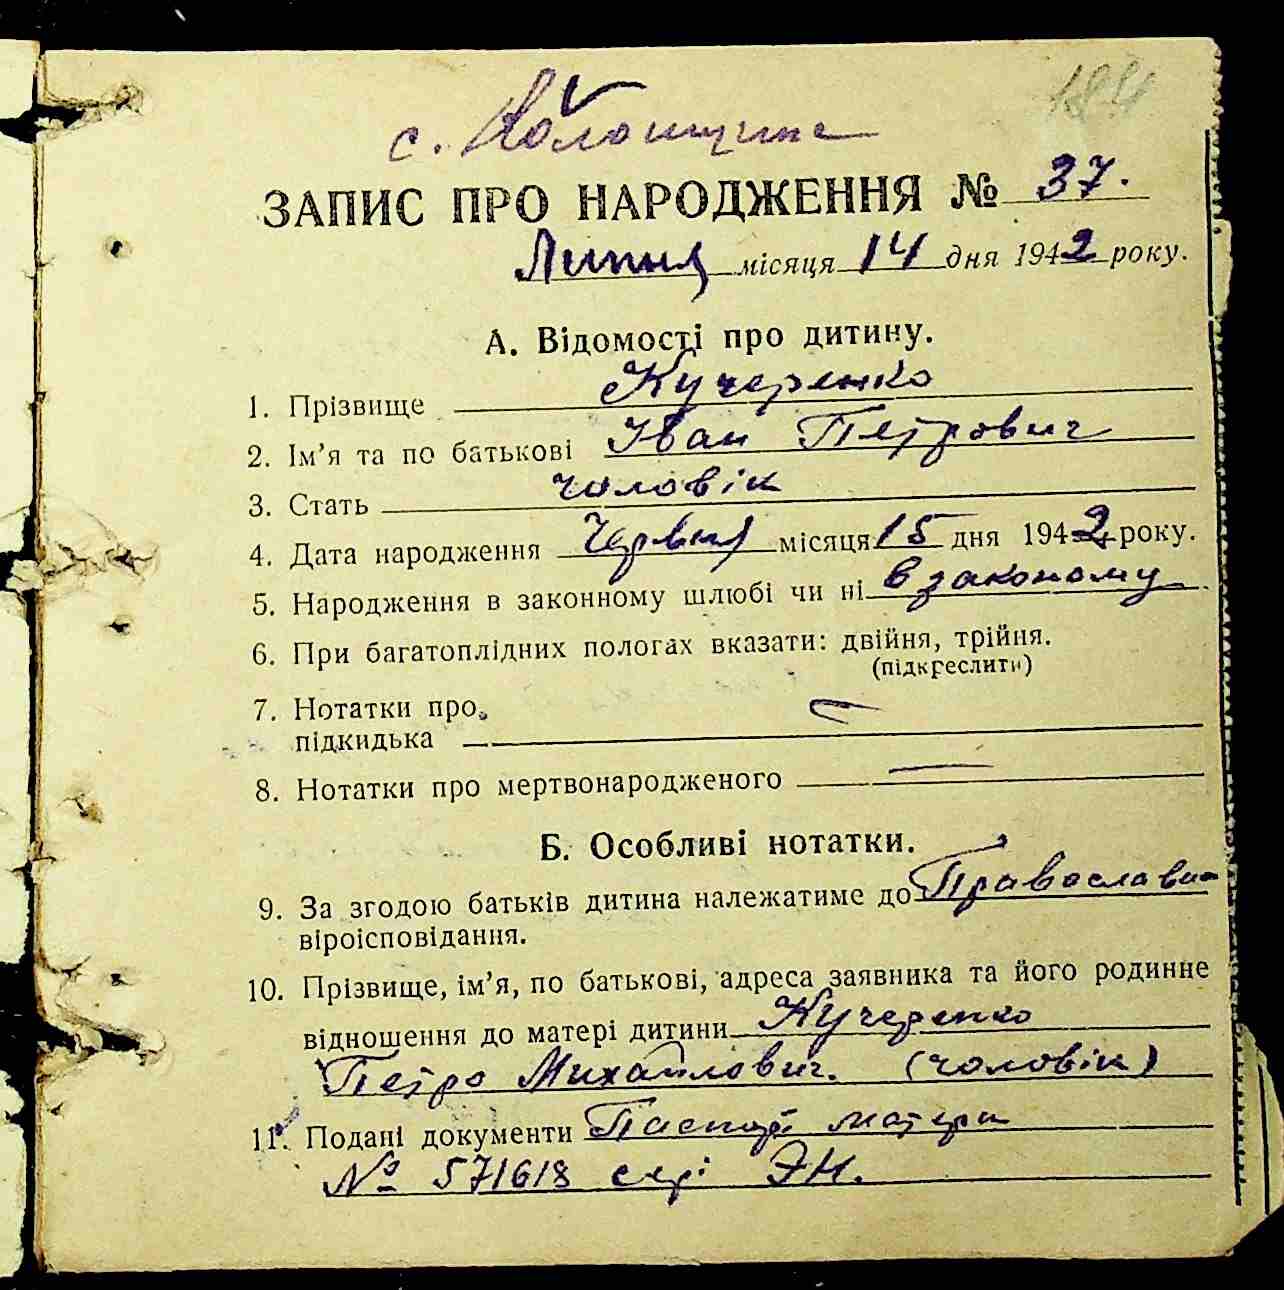 184
с. Волощине
ЗАПИС ПРО НАРОДЖЕННЯ № 37.
Липня місяця 14 дня 1942 року.
А. Відомості про дитину.
1. Прізвище Кучеренко
2. Ім'я та по батькові Іван Петрович
3. Стать чоловік
4. Дата народження Червня місяця 15 дня 1942 року.
5. Народження в законному шлюбі чи ні в законому
6. При багатоплідних пологах вказати: двійня, трійня.
(підкреслити)
7. Нотатки про
підкидька
8. Нотатки про мертвонародженого —
Б. Особливі нотатки.
9. За згодою батьків дитина належатиме до Православно
віроісповідання.
10. Прізвище, ім'я, по батькові, адреса заявника та його родинне
відношення до матері дитини Кучеренко
Петро Михайлович. (чоловік)
11. Подані документи Паспорт матери
№ 571618 сері ЭН.